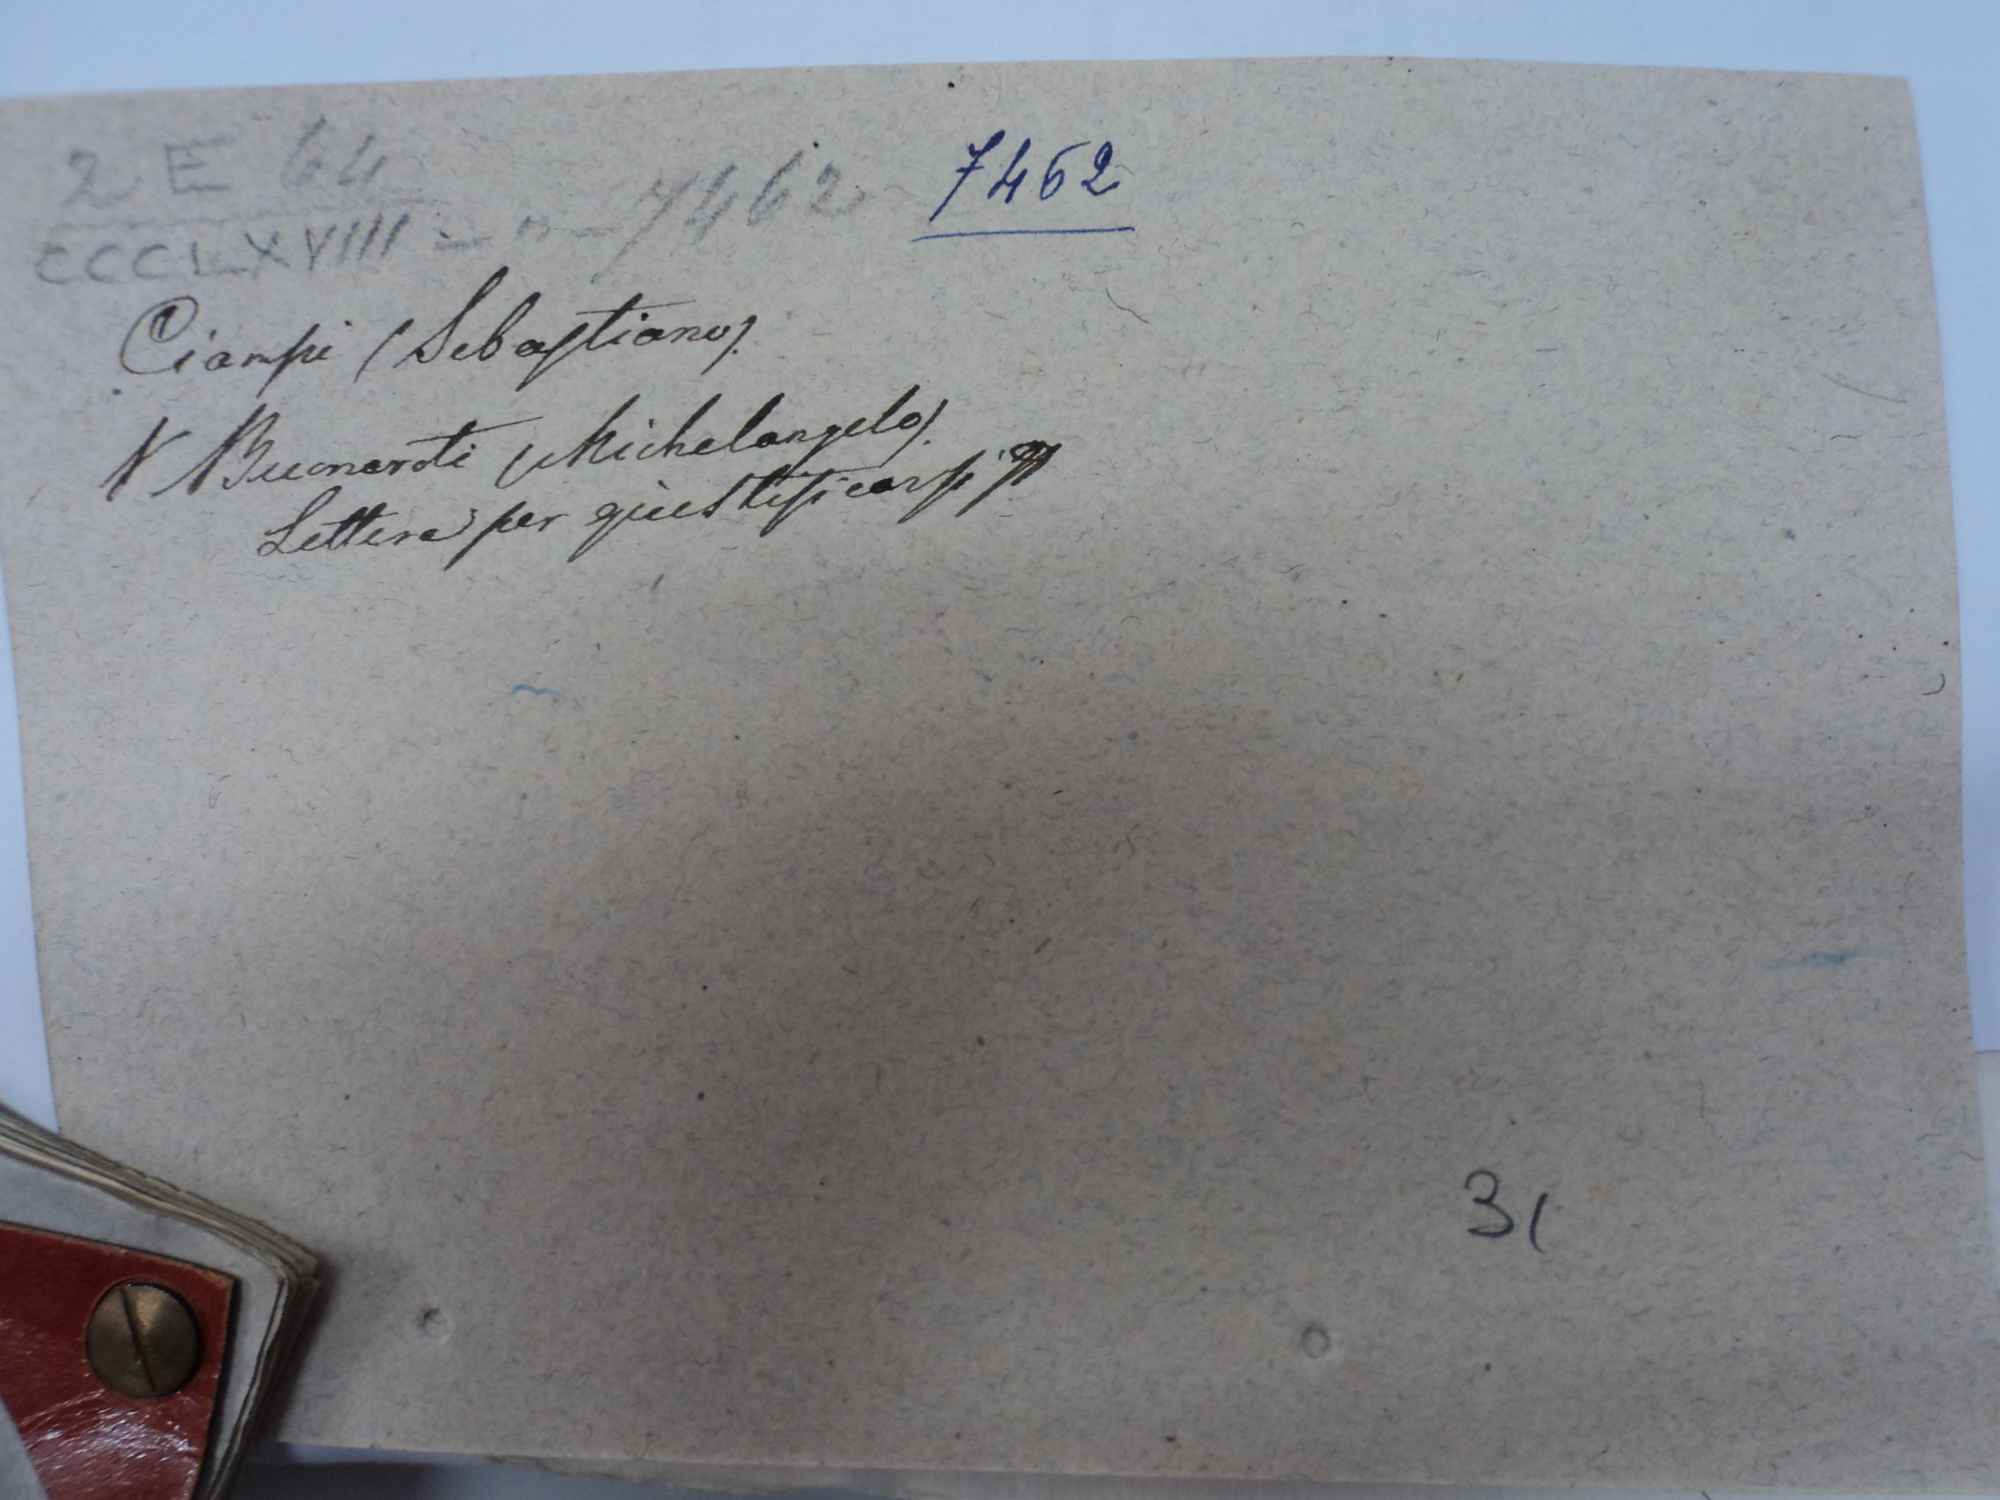 2 E 64
CCCLXVIII - n - 7462 7462
Ciampi (Sebastiano).
V Buonaroti (Michelangelo).
Lettera per giustificarsi
31